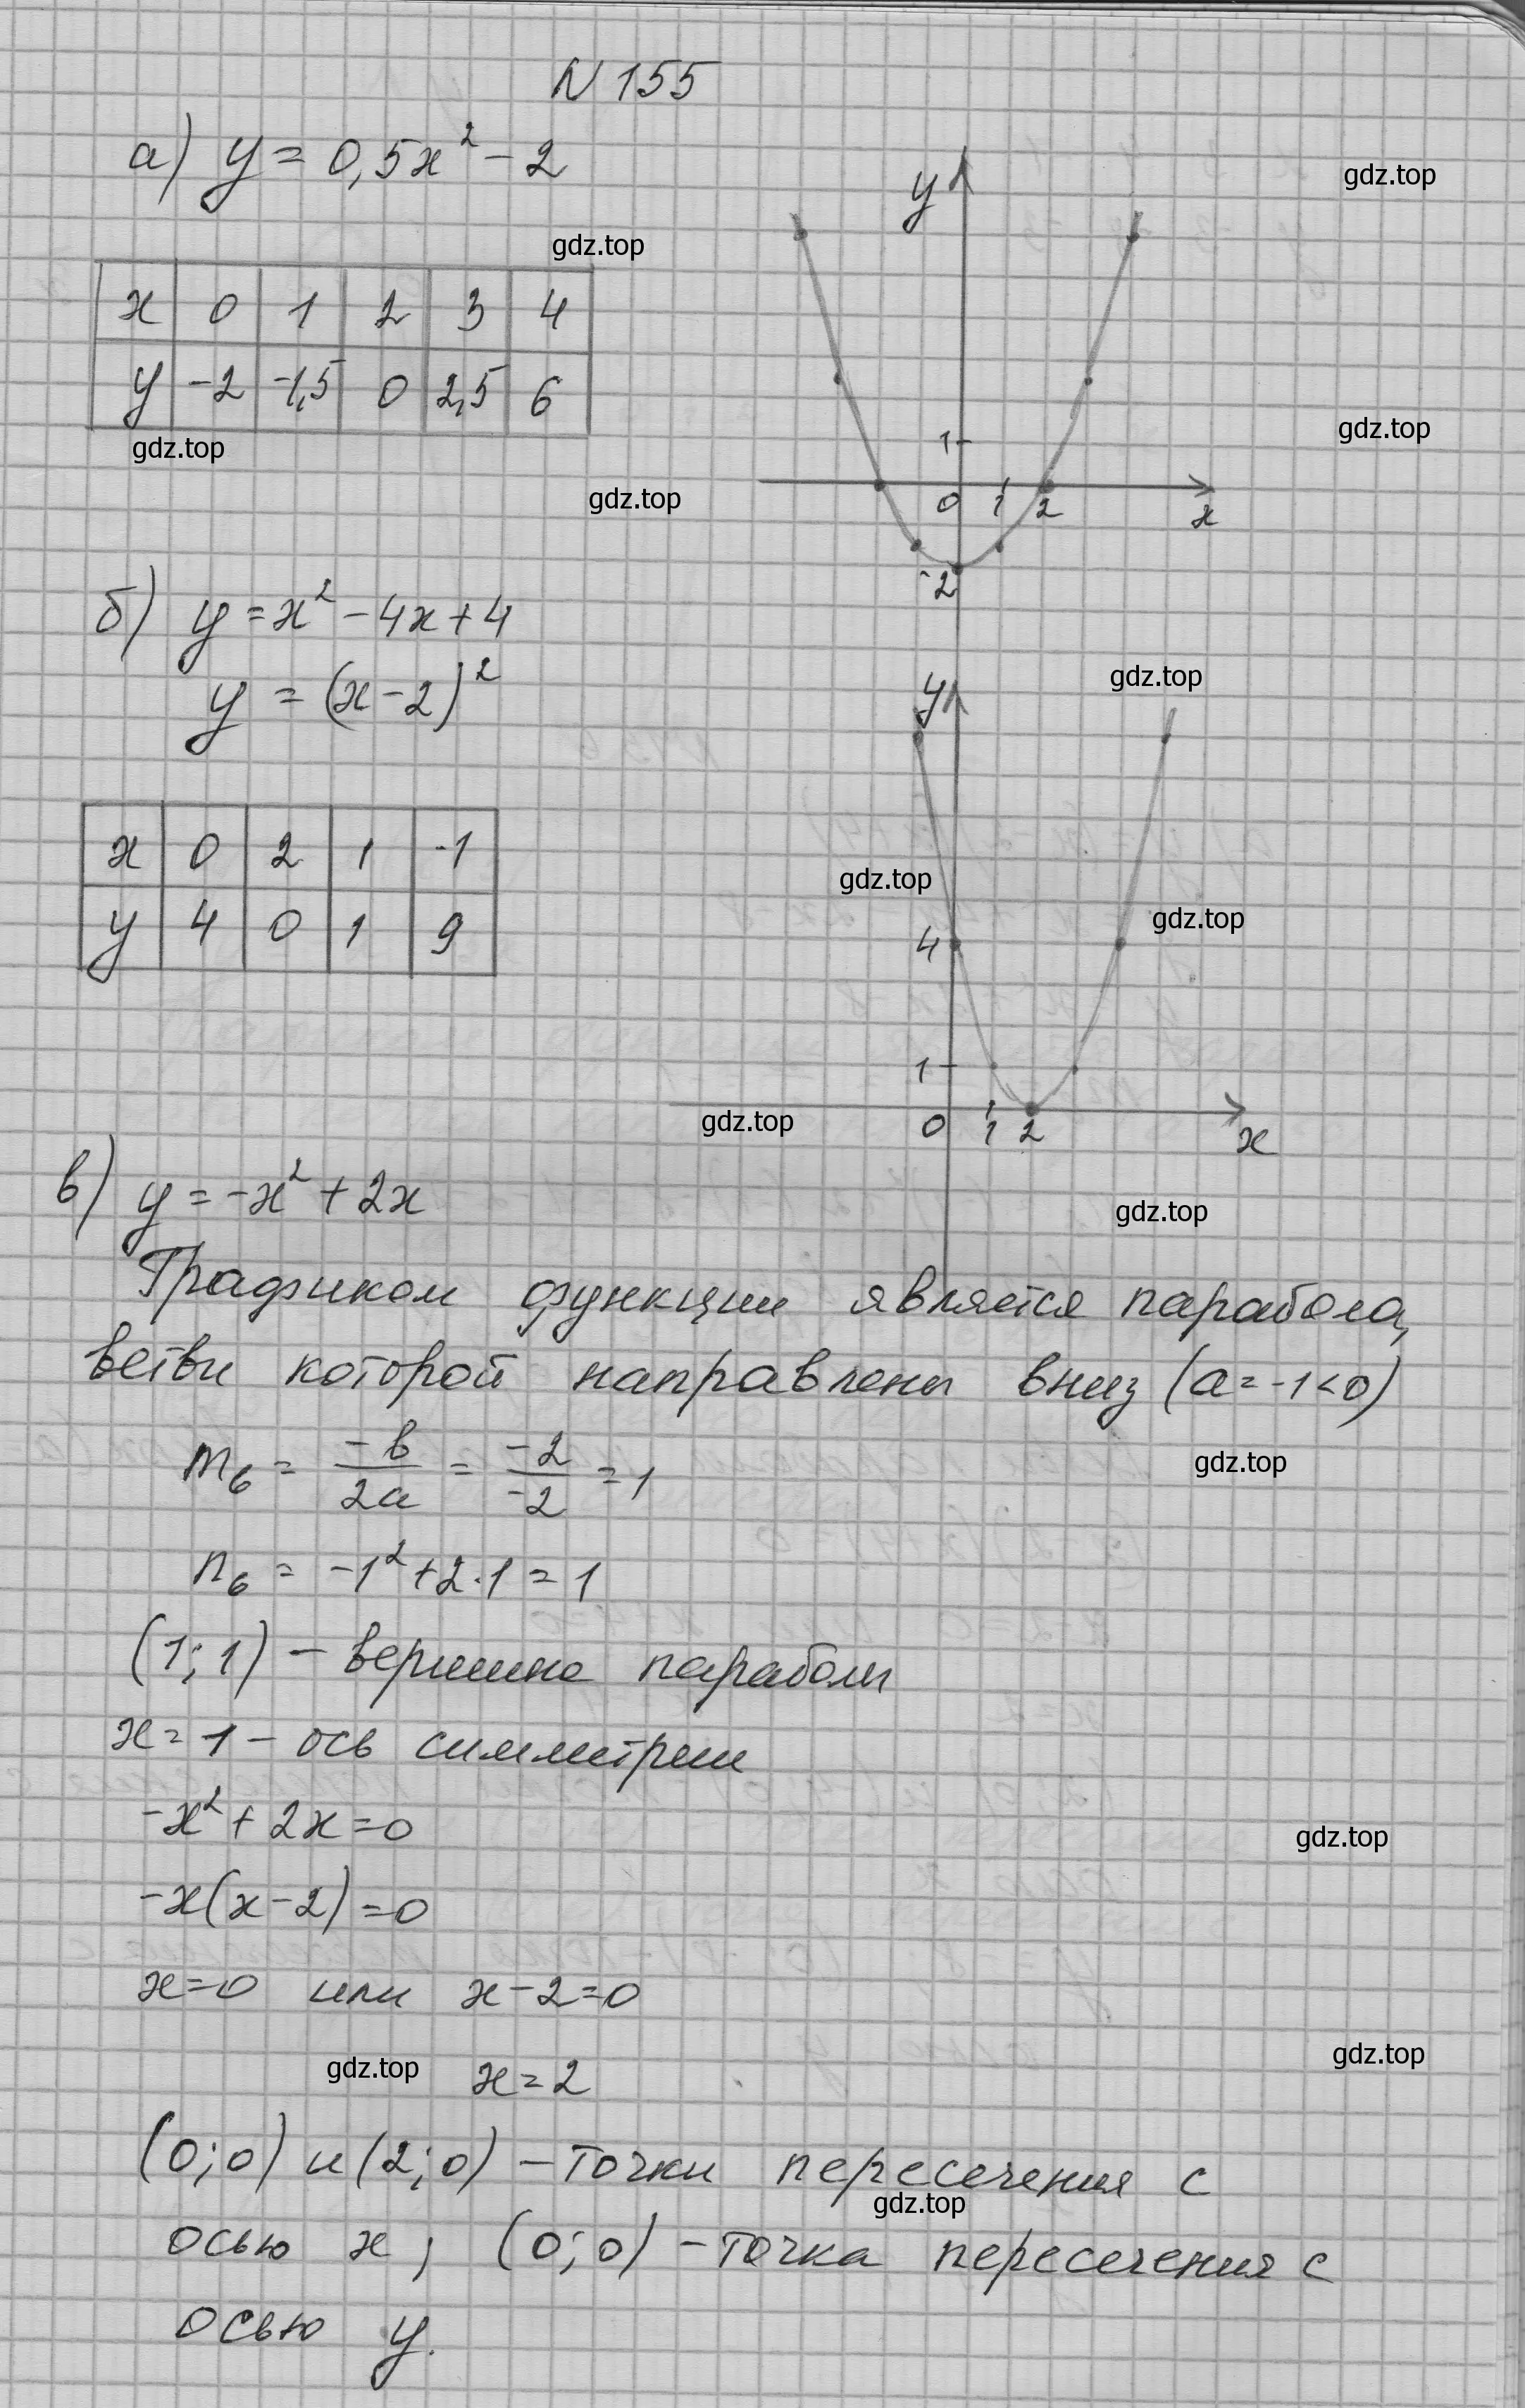 N 155
а) y = 0,5x² - 2
gdz.top
gdz.top
x 0 1 2 3 4
y -2 -1,5 0 2,5 6
gdz.top
gdz.top
gdz.top
y
1
0 1 2 x
-2
б) y = x² - 4x + 4
y = (x - 2)²
gdz.top
x 0 2 1 -1
y 4 0 1 9
gdz.top
gdz.top
y
4
1
0 1 2 x
gdz.top
в) y = -x² + 2x
gdz.top
Графиком функции является парабола,
ветви которой направлены вниз (a = -1 < 0)
m₆ = -b/2a = -2/-2 = 1
gdz.top
n₆ = -1² + 2·1 = 1
(1; 1) - вершина параболы
x = 1 - ось симметрии
-x² + 2x = 0
gdz.top
-x(x - 2) = 0
x = 0 или x - 2 = 0
gdz.top
gdz.top
x = 2
(0; 0) и (2; 0) - точки пересечения с
gdz.top
осью x; (0; 0) - точка пересечения с
осью y.